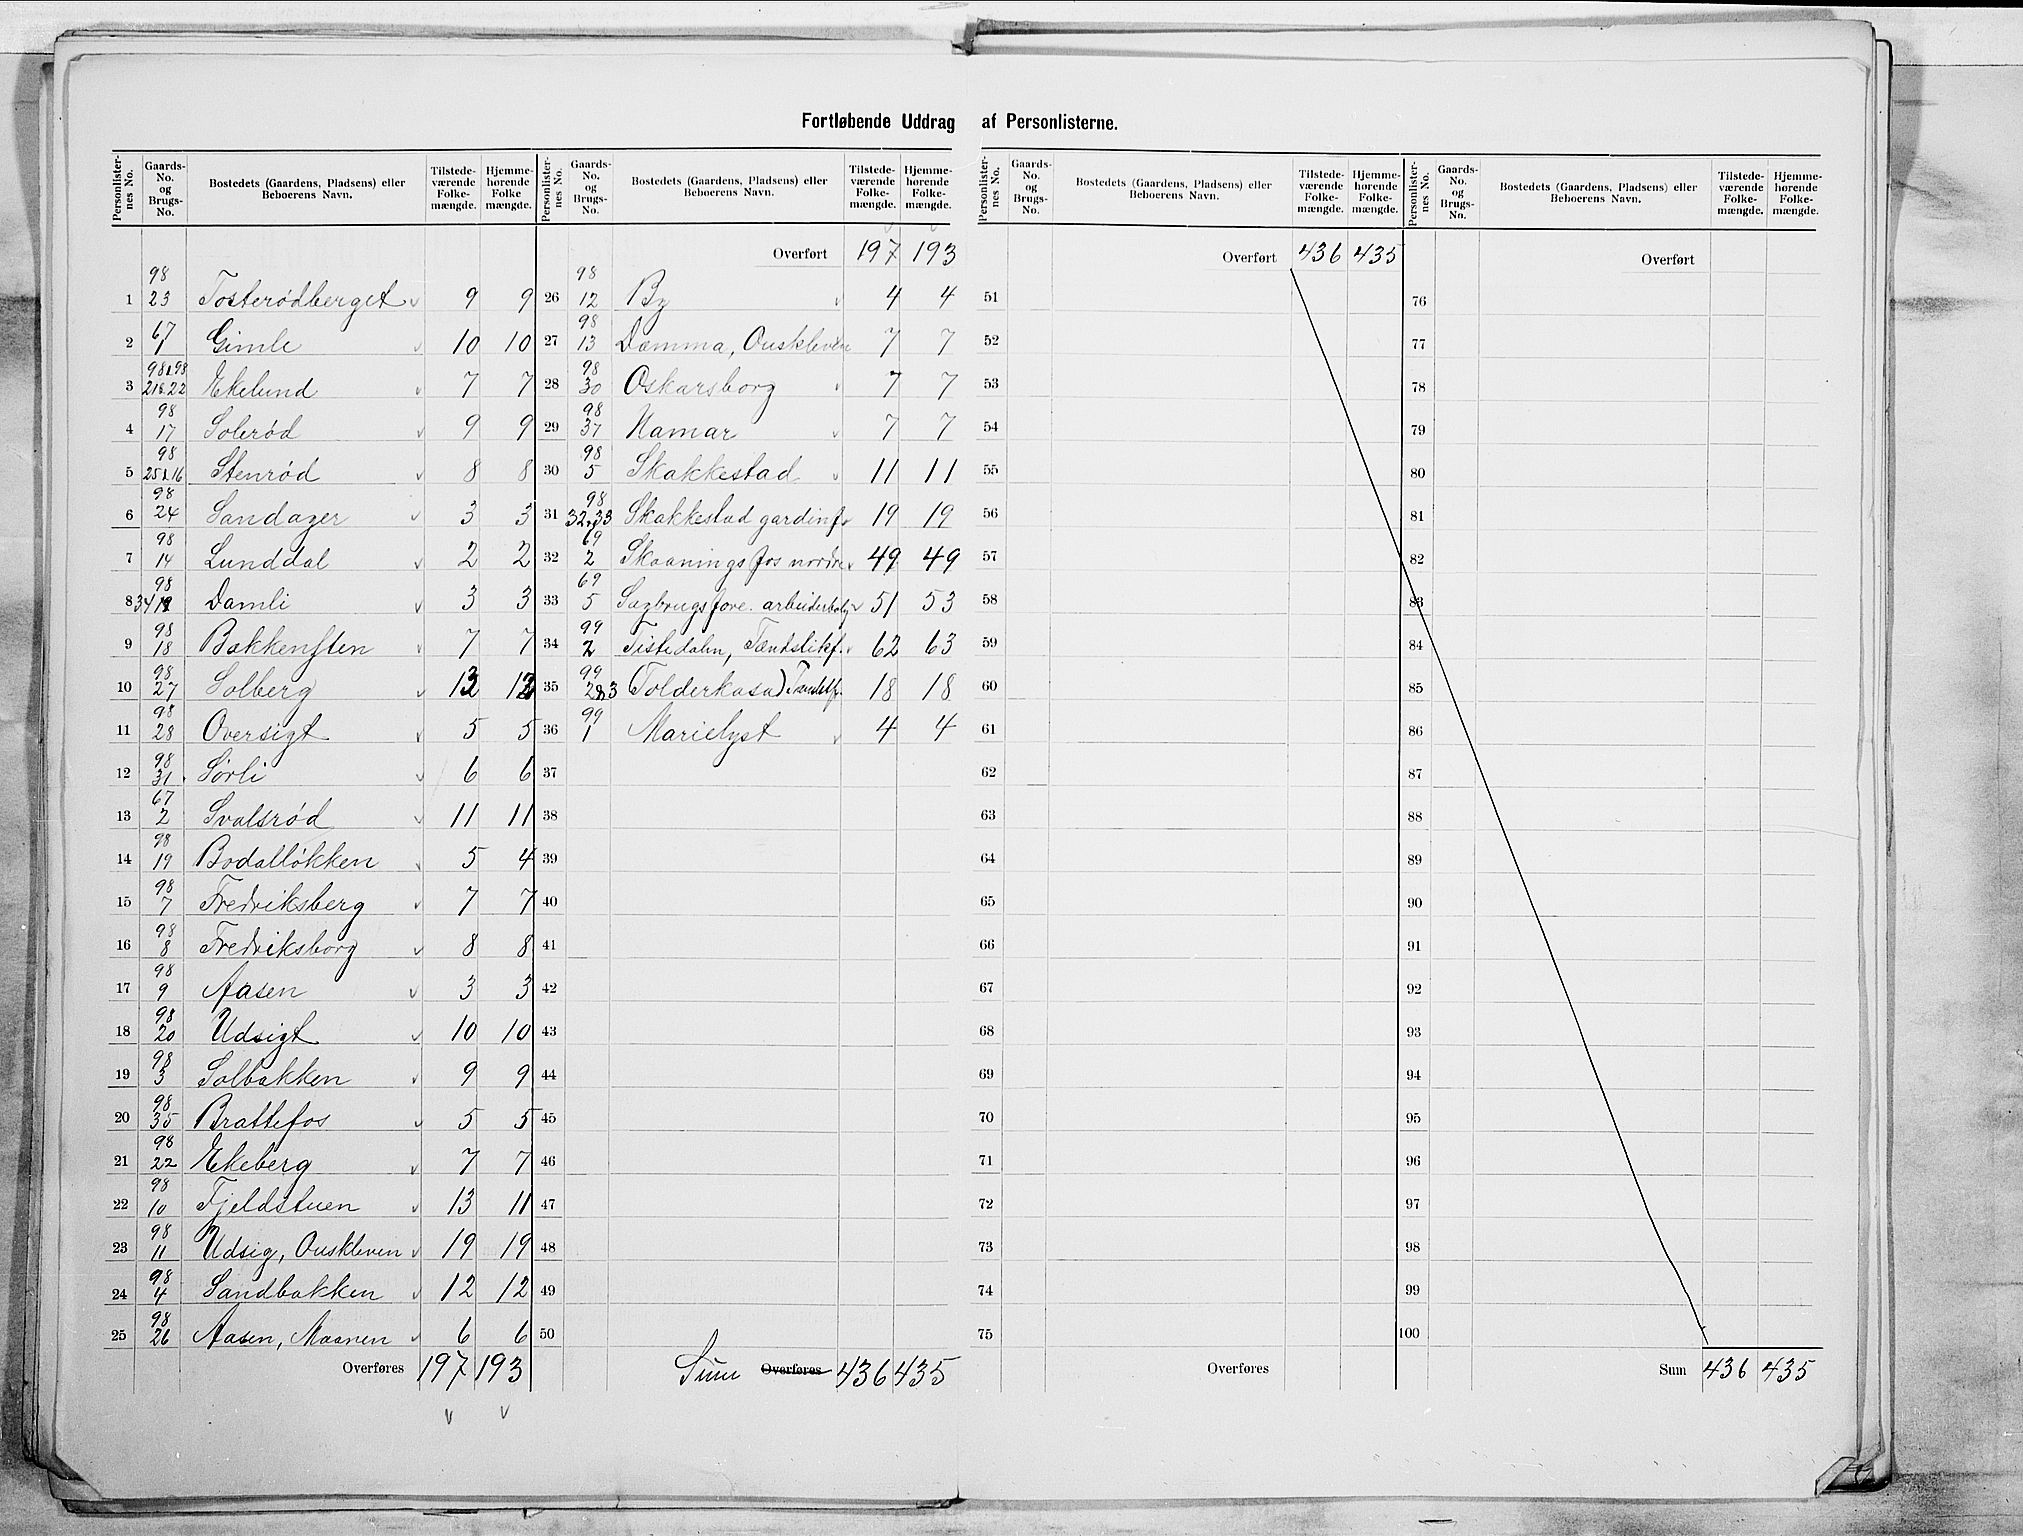 Fortløbende Uddrag af Personlisterne.
Personlister-nes No. | Gaards-No. og Brugs-No. | Bostedets (Gaardens, Pladsens) eller Beboerens Navn. | Tilstede-værende Folke-mængde. | Hjemme-hørende Folke mængde.
1 | 98 23 | Tosterødberget | 9 | 9
2 | 67 1 | Gimle | 10 | 10
3 | 98 & 98 21 & 22 | Ekelund | 7 | 7
4 | 98 17 | Solerød | 9 | 9
5 | 98 25 & 16 | Stenrød | 8 | 8
6 | 98 24 | Sandager | 3 | 3
7 | 98 14 | Lunddal | 2 | 2
8 | 98 34 | Damli | 3 | 3
9 | 98 18 | Bakkensten | 7 | 7
10 | 98 27 | Solberg
11 | 98 28 | Oversigt | 5 | 5
12 | 98 31 | Sørli | 6 | 6
13 | 67 2 | Svalsrød | 11 | 11
14 | 98 19 | Bodalløkken | 5 | 4
15 | 98 7 | Fredriksberg | 7 | 7
16 | 98 8 | Fredriksborg | 8 | 8
17 | 98 9 | Aasen | 3 | 3
18 | 98 20 | Udsigt | 10 | 10
19 | 98 3 | Solbakken | 9 | 9
20 | 98 35 | Brattefos | 5 | 5
21 | 98 22 | Ekeberg | 7 | 7
22 | 98 10 | Fjeldstuen | 13 | 11
23 | 98 11 | Udsig, Ouskleven | 19 | 19
24 | 98 4 | Sandbakken | 12 | 12
25 | 98 26 | Aasen, Maanen | 6 | 6
Overføres 197 193
Personlister-nes No. | Gaards-No. og Brugs-No. | Bostedets (Gaardens, Pladsens) eller Beboerens Navn. | Tilstede-værende Folke-mængde. | Hjemme-hørende Folke-mængde.
Overført 197 193
26 | 98 12 | By | 4 | 4
27 | 98 13 | Damma, Ouskleven | 7 | 7
28 | 98 30 | Oskarsborg | 7 | 7
29 | 98 37 | Hamar | 7 | 7
30 | 98 5 | Skakkestad | 11 | 11
31 | 98 32 & 33 | Skakkestad | 19 | 19
32 | 69 2 | Skaaningsfos nordre | 49 | 49
33 | 69 5 | Sagbrugsfore. arbeiderbolg | 51 | 53
34 | 99 2 | Tistedalen, Tændstikf. | 62 | 63
35 | 99 2 & 3 | (Tolderkasa) | 18 | 18
36 | 99 1 | Marielyst | 4 | 4
37
38
39
40
41
42
43
44
45
46
47
48
49
50
Sum Overføres 436 435
Personlister-nes No. | Gaards-No. og Brugs-No. | Bostedets (Gaardens, Pladsens) eller Beboerens Navn. | Tilstede-værende Folke-mængde. | Hjemme-hørende Folke-mængde.
Overført 436 435
51
52
53
54
55
56
57
58
59
60
61
62
63
64
65
66
67
68
69
70
71
72
73
74
75
Overføres
Personlister-nes No. | Gaards-No. og Brugs-No. | Bostedets (Gaardens, Pladsens) eller Beboerens Navn. | Tilstede-værende Folke-mængde. | Hjemme-hørende Folke-mængde.
Overført
76
77
78
79
80
81
82
83
84
85
86
87
88
89
90
91
92
93
94
95
96
97
98
99
100
Sum 436 435